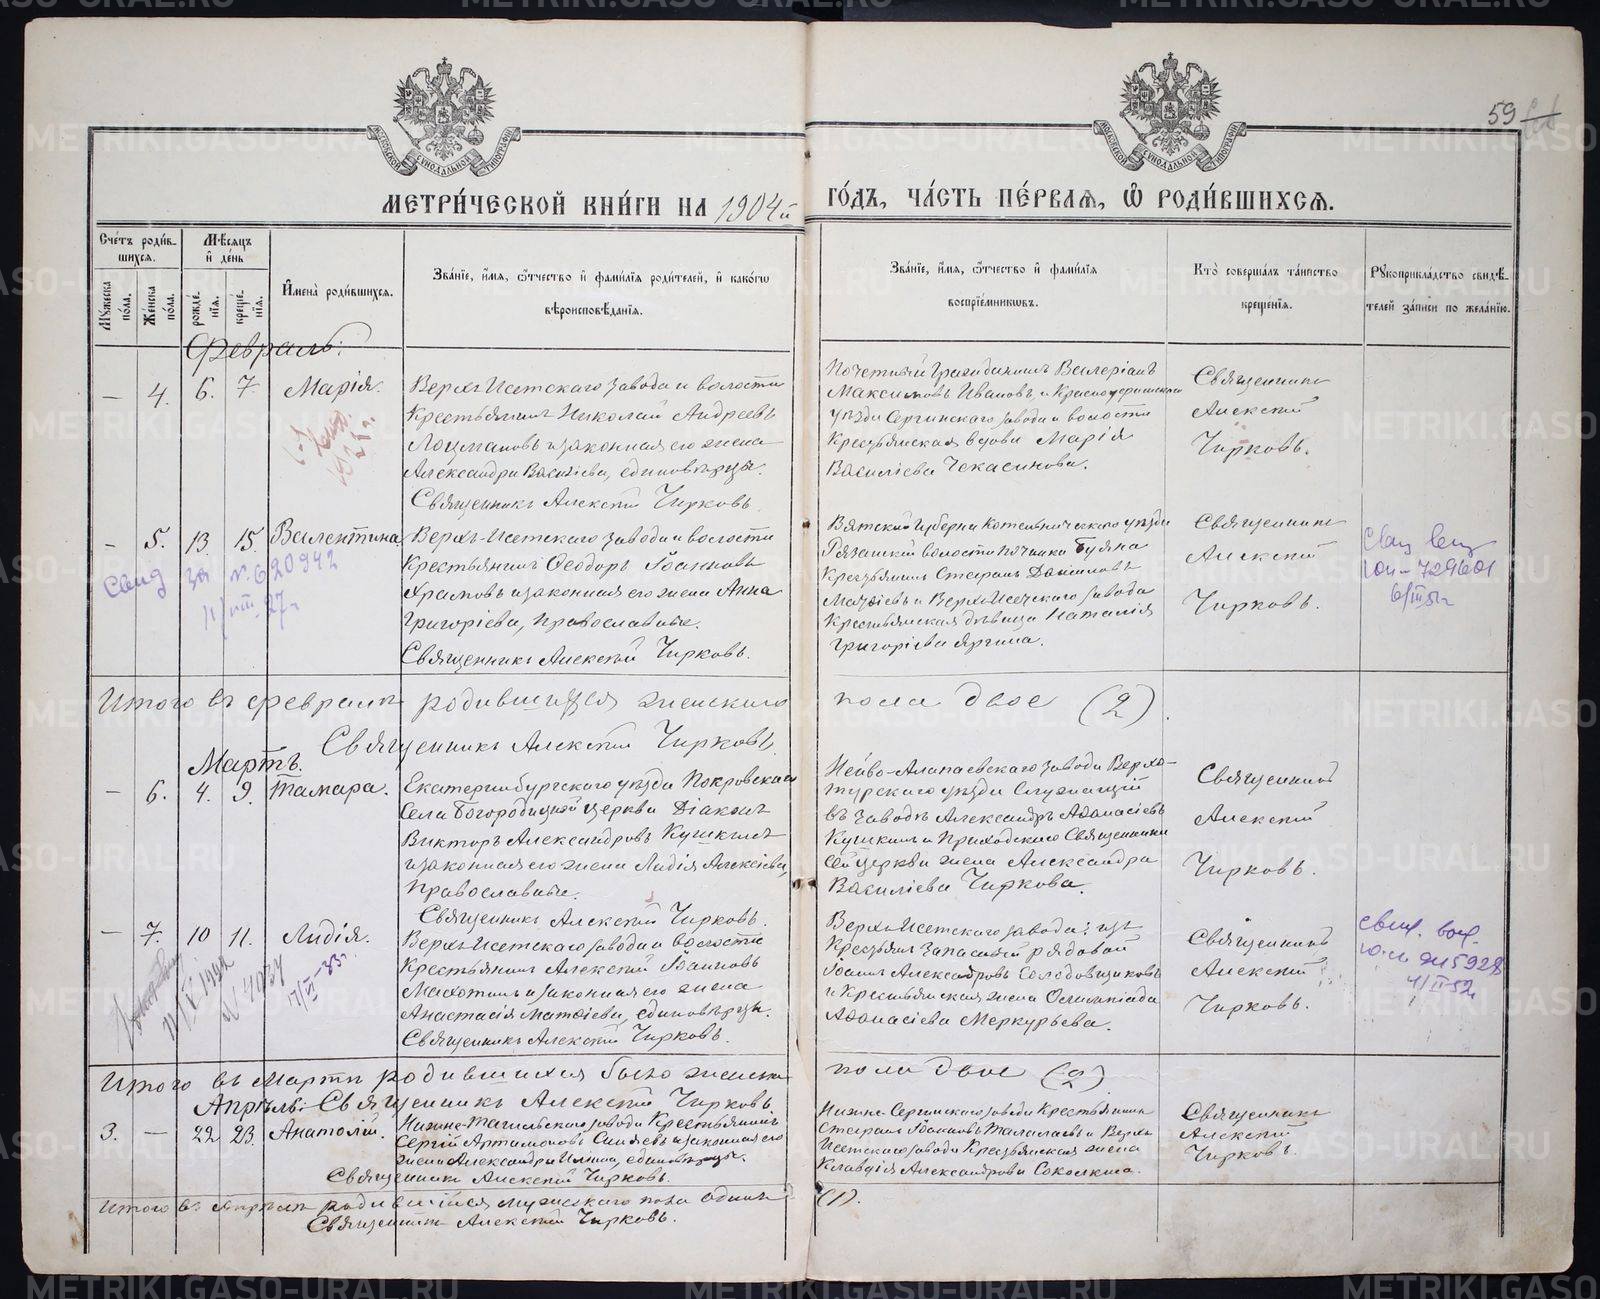 59
МЕТРИ́ЧЕСКОЙ КНИ́ГИ НА 1904й ГО́ДЪ, ЧА́СТЬ ПЕ́РВАЯ, Ѡ РОДИ́ВШИХСЯ.
Счётъ роди́вшихся.
Мѣсяцъ и день
Имена̀ роди́вшихся.
Зва́нїе, и́мя, ѻ́тчество и фами́лїя роди́телей, и како́гѡ вѣроисповѣ́данїя.
Зва́нїе, и́мя, ѻ́тчество и фами́лїя воспрїе́мникѡвъ.
Кто̀ соверша́лъ та́инство креще́нїя.
Рꙋкоприкла́дство свидѣ́телей за́писи по жела́нїю.
Мꙋ́жеска по́ла.
Же́нска по́ла.
рожде́нїя.
креще́нїя.
Февраль:
— 4. 6. 7. Марія.
Верхъ-Исетскаго завода и волости
Крестьянинъ Николай Андреевъ
Лоцмановъ и законная его жена
Александра Васильева, единоверцы.
Священникъ Алексей Чирковъ.
Почетный Гражданинъ Валеріанъ
Максимовъ Ивановъ, и Красноуфимскаго
уезда Сергинскаго завода и волости
Крестьянская вдова Марія
Василіева Чекасинова.
Священникъ
Алексей
Чирковъ.
— 5. 13 15. Валентина.
Верхъ-Исетскаго завода и волости
Крестьянинъ Феодоръ Іоанновъ
Храмовъ и законная его жена Анна
Григоріева, Православные.
Священникъ Алексей Чирковъ.
Свид за № 620942
11/VIII 27 г
Вятской Губерніи Котельническаго уезда
Крестьянинъ Стефанъ Даниловъ
и Верхъ-Исетскаго завода
Крестьянская девица Наталія
Григоріева Яргина.
Священникъ
Алексей
Чирковъ.
729601
Итого въ феврале родившихся женскаго пола двое (2).
Священникъ Алексей Чирковъ.
Мартъ.
— 6. 4. 9. Тамара.
Екатеринбургскаго уезда Покровскаго
села Богородицкой церкви Діаконъ
Викторъ Александровъ Кушкинъ
и законная его жена Лидія Алексіева,
Православные.
Священникъ Алексей Чирковъ.
Нейво-Алапаевскаго завода Верхо-
турскаго уезда Служащій
въ заводе Александръ Афанасіевъ
Кушкинъ и Приходскаго Священника
сей церкви жена Александра
Василіева Чиркова.
Священникъ
Алексей
Чирковъ.
— 7. 10 11. Лидія.
Верхъ-Исетскаго завода и волости
Крестьянинъ Алексей Іоанновъ
Махотинъ и законная его жена
Анастасія Матфіева, единоверцы.
Священникъ Алексей Чирковъ.
Верхъ-Исетскаго завода: изъ
Крестьянъ Запасный рядовой
Іоаннъ Александровъ Солодовщиковъ
и Крестьянская жена Олимпіада
Афанасіева Меркурьева.
Священникъ
Алексей
Чирковъ.
Итого въ Марте родившихся было женска пола двое (2)
Апрель: Священникъ Алексей Чирковъ
3. — 22 23 Анатолій.
Нижне-Тагильскаго завода Крестьянинъ
Сергій Артамоновъ Синяевъ и законная его
жена Александра Ильина, единоверцы.
Священникъ Алексей Чирковъ.
Нижне-Сергинскаго завода Крестьянинъ
Стефанъ Іоанновъ Талалаевъ и Верхъ-
Исетскаго завода Крестьянская жена
Клавдія Александрова Соколкина.
Священникъ
Алексей
Чирковъ.
Итого въ Апреле родившійся мужескаго пола одинъ (1).
Священникъ Алексей Чирковъ.
METRIKI.GASO-URAL.RU